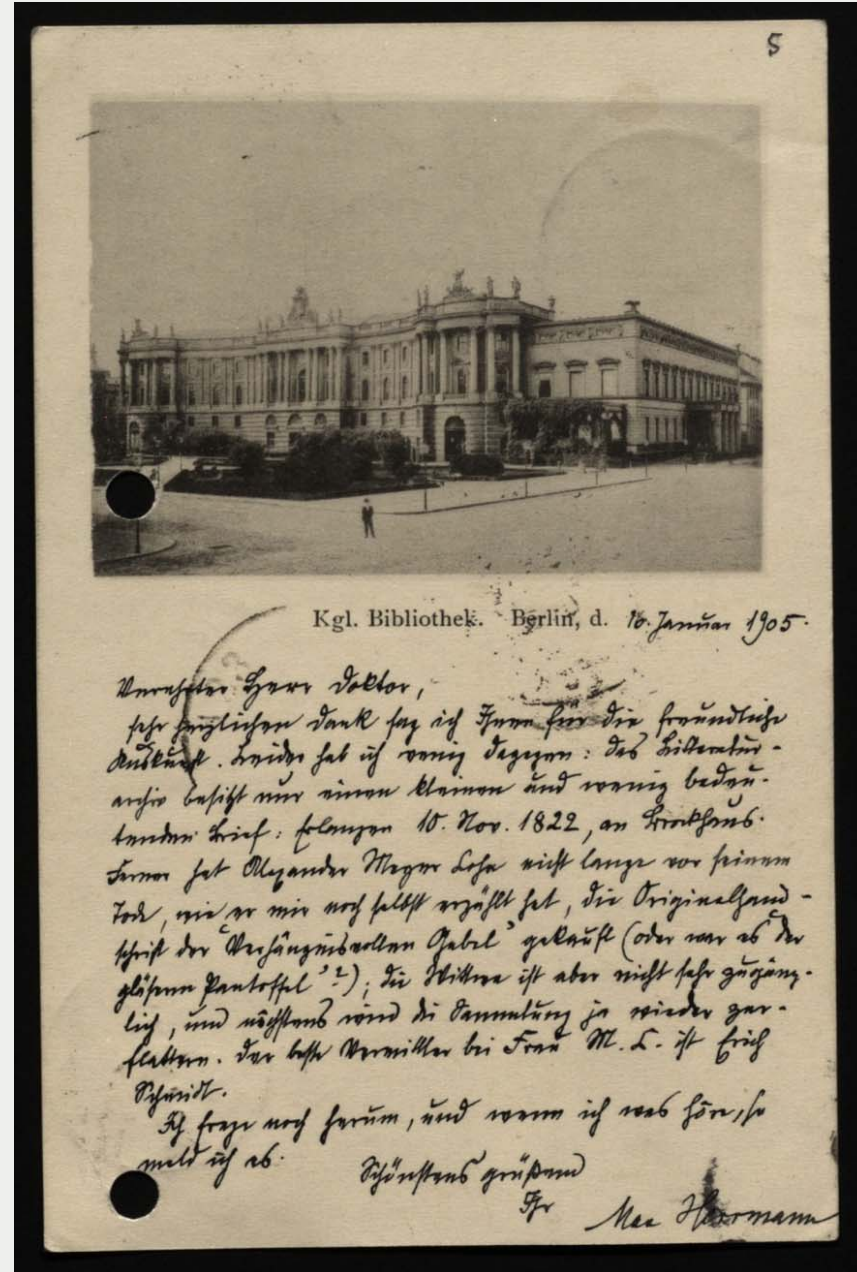 5
Kgl. Bibliothek. Berlin, d. 16. Januar 1905.
Verehrter Herr Doktor,
sehr herzlichen Dank sag ich Ihnen für die freundliche
Auskunft. Leider hab ich wenig dagegen: das Litteratur-
archiv besitzt nur einen kleinen und wenig bedeu-
tenden Brief: Erlangen 10. Nov. 1822, an Brockhaus.
Ferner hat Alexander Meyer Cohn nicht lange vor seinem
Tode, wie er mir noch selbst erzählt hat, die Originalhand-
schrift der "Verhängnisvollen Gabel" gekauft (oder war es "der
gläserne Pantoffel"?); die Wittwe ist aber nicht sehr zugäng-
lich, und nächstens wird die Sammlung ja wieder zer-
flattern. Der beste Vermittler bei Frau M. C. ist Erich
Schmidt.
Ich frage noch herum, und wenn ich was höre, so
meld ich es.
Schönstens grüßend
Ihr
Max Herrmann